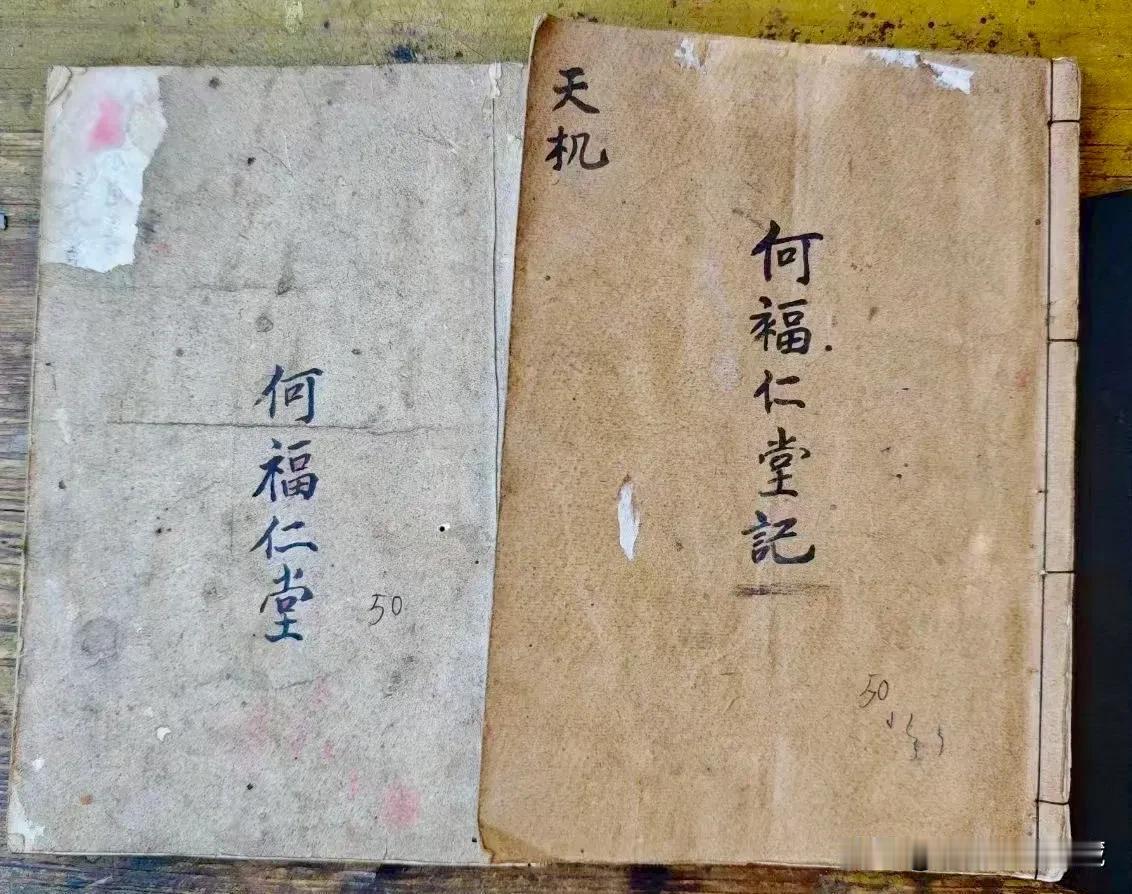 何福仁堂
50
天机
何福仁堂記
50